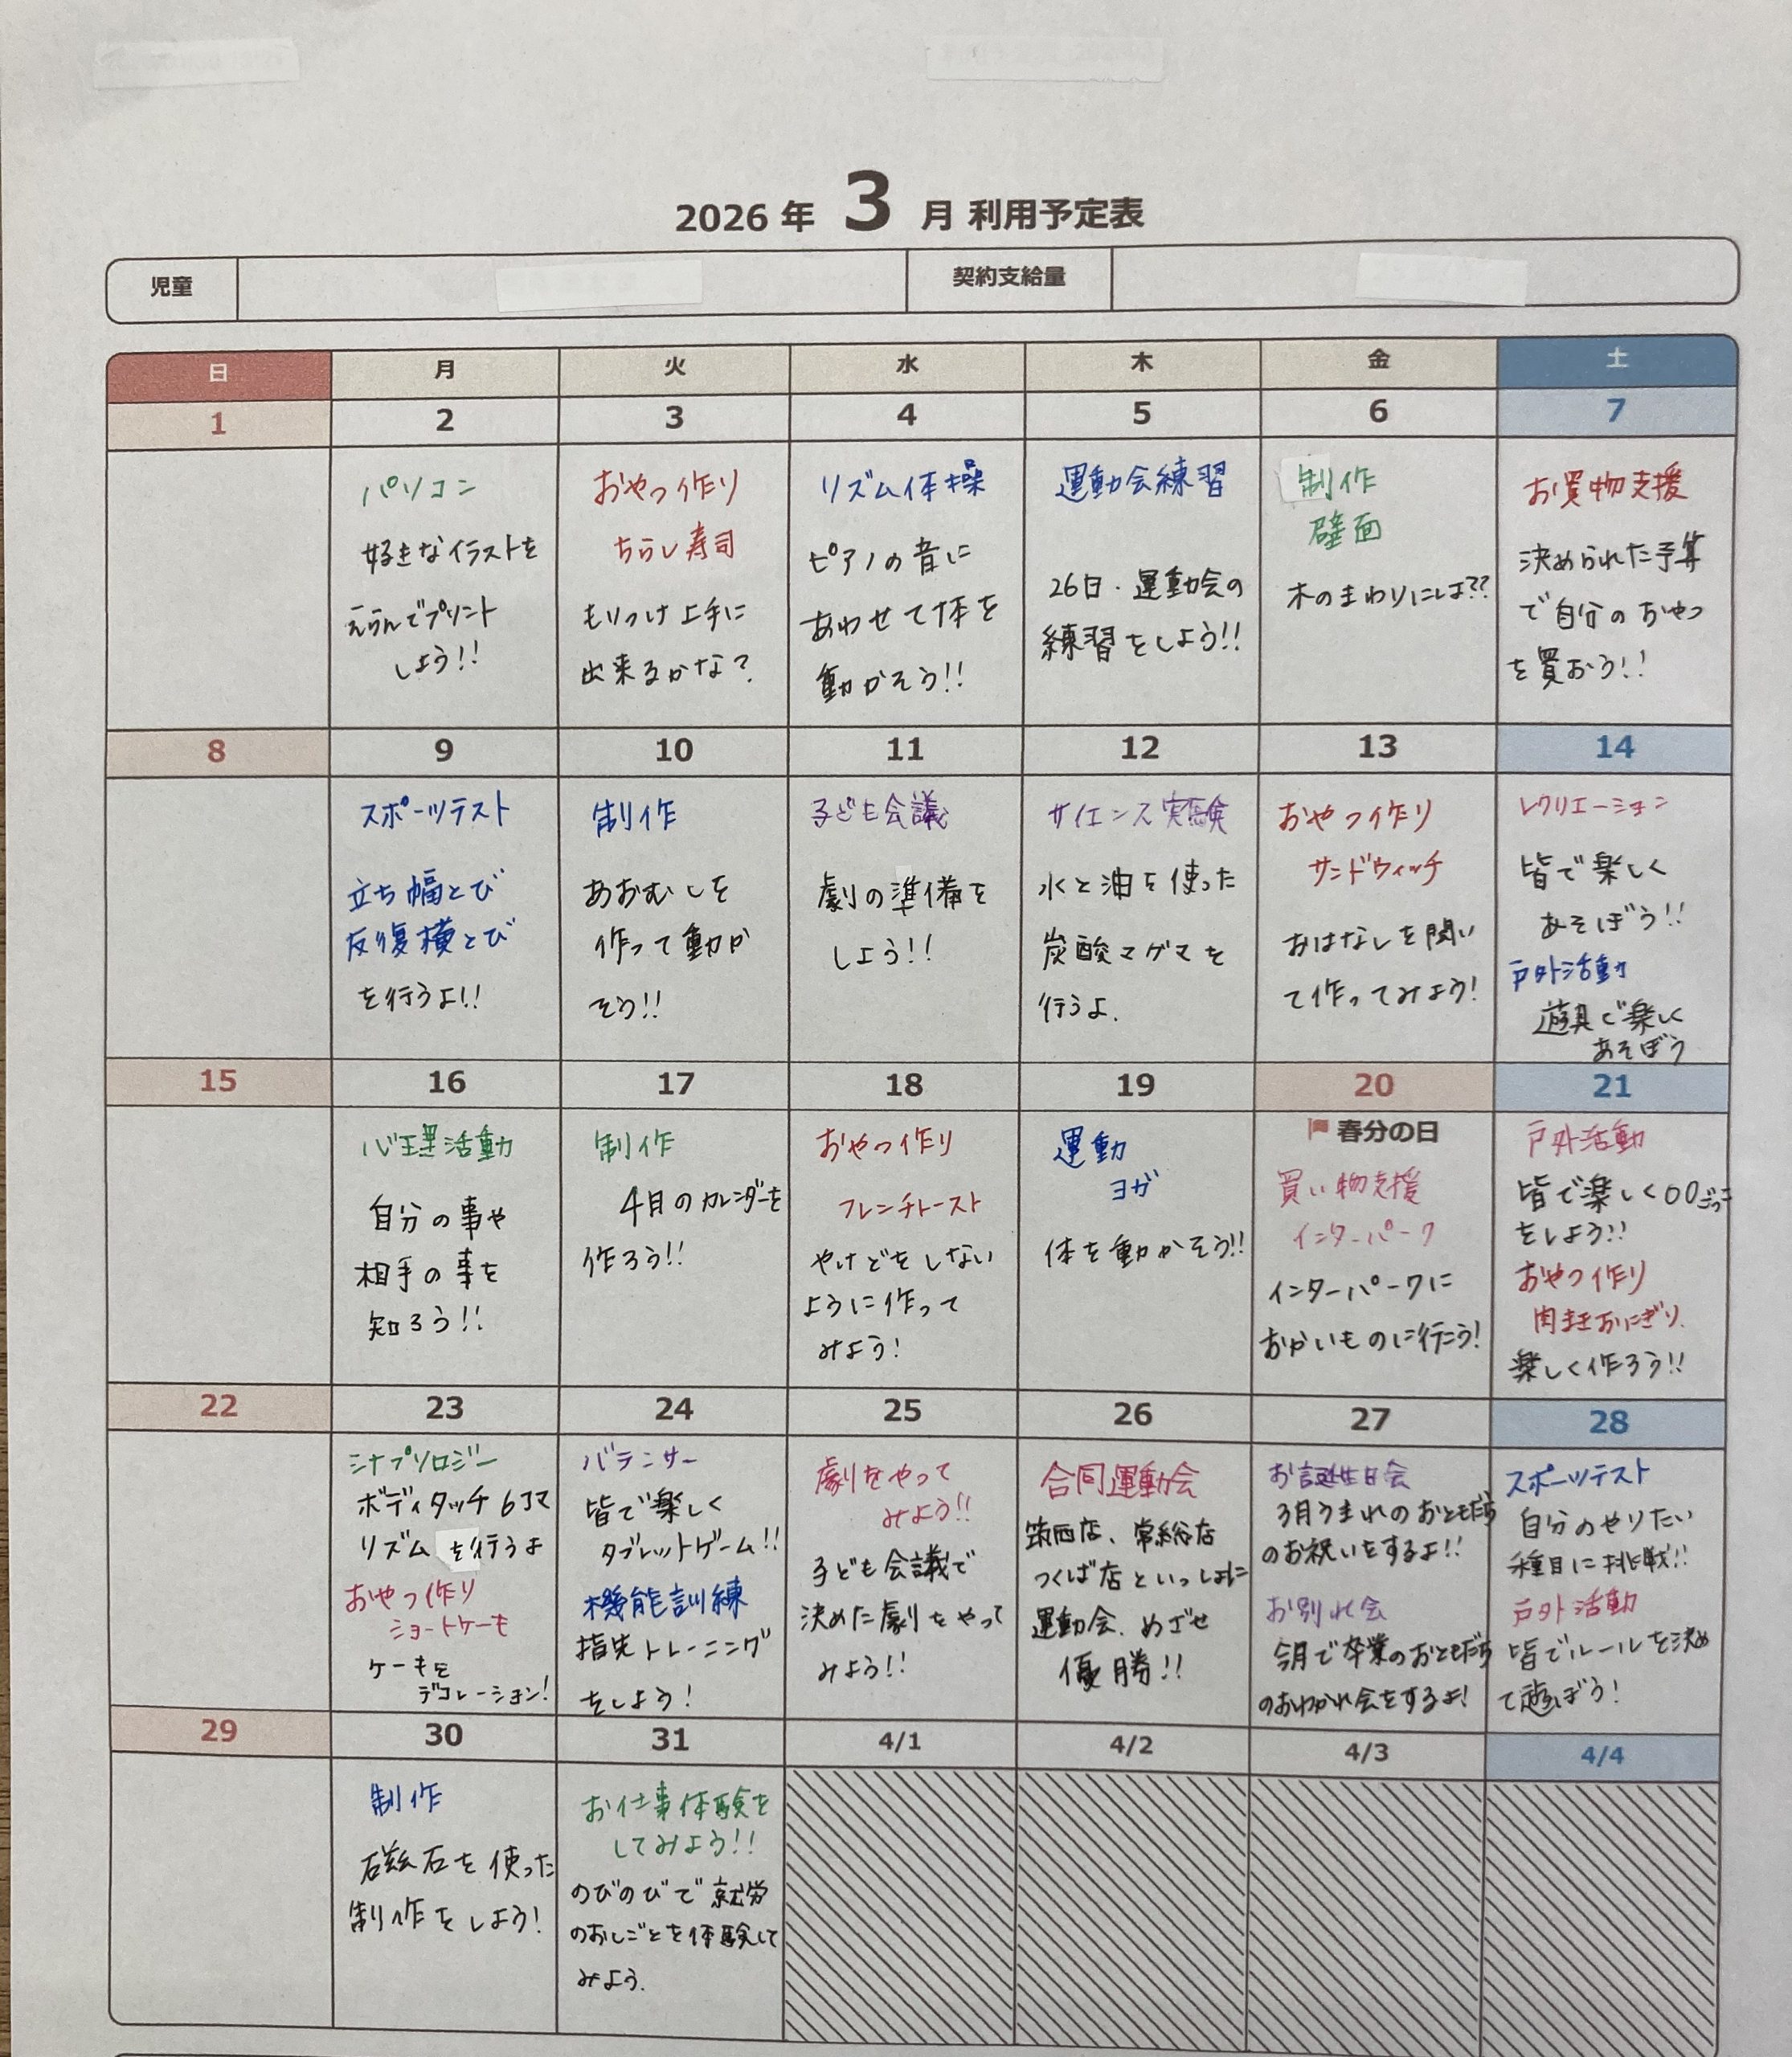 2026 年 3 月 利用予定表
児童
契約支給量
日 月 火 水 木 金 土
1 2 3 4 5 6 7
パソコン
好きなイラストを
えらんでプリント
しよう!!
おやつ作り
ちらし寿司
もりつけ上手に
出来るかな?
リズム体操
ピアノの音に
あわせて体を
動かそう!!
運動会練習
26日・運動会の
練習をしよう!!
制作
壁面
木のまわりには??
お買物支援
決められた予算
で自分のおやつ
を買おう!!
8 9 10 11 12 13 14
スポーツテスト
立ち幅とび
反復横とび
を行うよ!!
制作
あおむしを
作って動か
そう!!
子ども会議
劇の準備を
しよう!!
サイエンス実験
水と油を使った
炭酸マグマを
行うよ.
おやつ作り
サンドウィッチ
おはなしを聞い
て作ってみよう!
レクリエーション
皆で楽しく
あそぼう!!
戸外活動
遊具で楽しく
あそぼう
15 16 17 18 19 20 21
心理活動
自分の事や
相手の事を
知ろう!!
制作
4月のカレンダーを
作ろう!!
おやつ作り
フレンチトースト
やけどをしない
ように作って
みよう!
運動
ヨガ
体を動かそう!!
春分の日
買い物支援
インターパーク
インターパークに
おかいものに行こう!
戸外活動
皆で楽しく〇〇ごっこ
をしよう!!
おやつ作り
肉巻おにぎり.
楽しく作ろう!!
22 23 24 25 26 27 28
シナプソロジー
ボディタッチ 6コマ
リズム を行うよ
おやつ作り
ショートケーキ
ケーキを
デコレーション!
バランサー
皆で楽しく
タブレットゲーム!!
機能訓練
指先トレーニング
をしよう!
劇をやって
みよう!!
子ども会議で
決めた劇をやって
みよう!!
合同運動会
筑西店、常総店
つくば店といっしょに
運動会.めざせ
優勝!!
お誕生日会
3月うまれのおともだち
のお祝いをするよ!!
お別れ会
今月で卒業のおともだち
のおわかれ会をするよ!
スポーツテスト
自分のやりたい
種目に挑戦!!
戸外活動
皆でルールを決め
て遊ぼう!
29 30 31 4/1 4/2 4/3 4/4
制作
磁石を使った
制作をしよう!
お仕事体験を
してみよう!!
のびのびで就労
のおしごとを体験して
みよう.